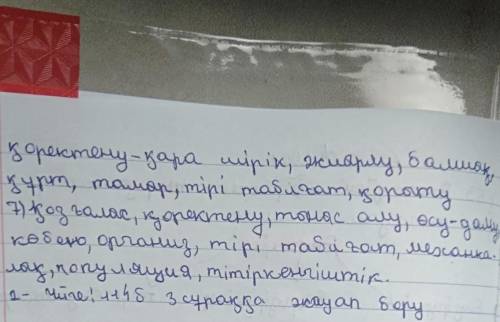 қоректену-қара шірік, жиарлу, балшық,
құрт, тамар, тірі табиғат, қорыту
7) қозғалас, қоректену, тыныс алу, өсу-даму,
көбею, организ, тірі табиғат, механка-
лық, популяция, тітіркенгіштік.
үйге! 114б 3 сұраққа жауап беру